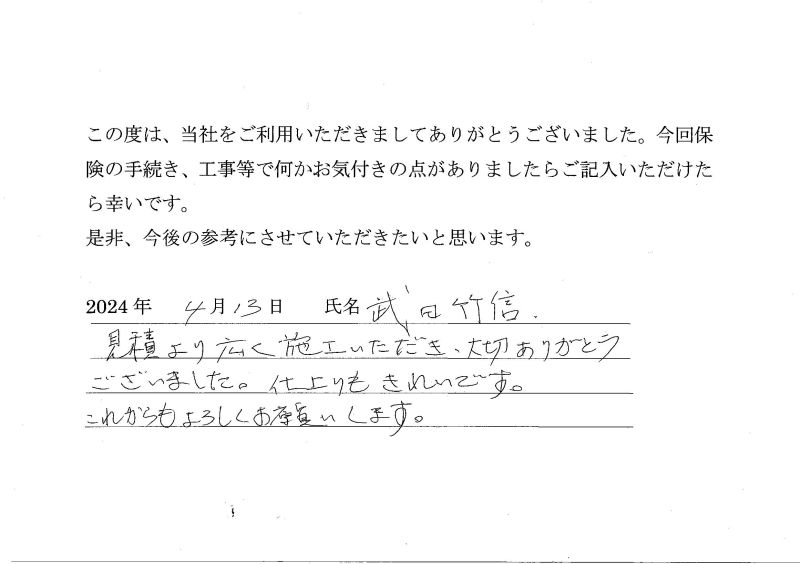 この度は、当社をご利用いただきましてありがとうございました。今回保
険の手続き、工事等で何かお気付きの点がありましたらご記入いただけた
ら幸いです。
是非、今後の参考にさせていただきたいと思います。
2024年 4月13日 氏名 武田竹信.
見積より広く施工いただき、大切ありがとう
ございました。仕上りもきれいです。
これからもよろしくお願いします。